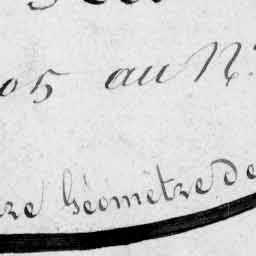 05 au N.
re Géometre de